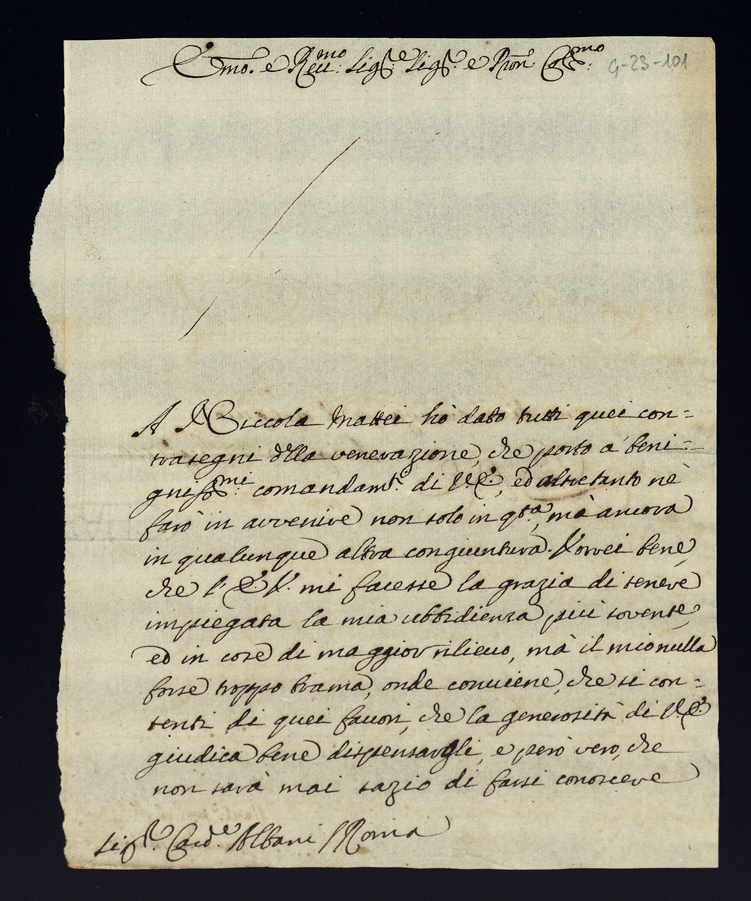 Emo. e Rev:mo Sig:re Sig:r e Pron Col:mo
G-23-101
A Niccola Mattei hò dato tutti quei con=
trasegni d'lla venerazione, che porto a' beni=
gniss:mi comandam:ti di V.E., ed altretanto nè
farò in avvenire non solo in q:ta, mà ancora
in qualunque altra congiuntura. Vorrei bene,
che l'E.V. mi facesse la grazia di tenere
impiegata la mia ubbidienza più sovente,
ed in cose di maggior rilievo, mà il mio nulla
forse troppo brama, onde conviene, che si con=
tenti di quei favori, che la generosità di V.E.
giudica bene dispensargli, e però vero, che
non sarà mai sazio di farsi conoscere
Sig:r Card:le Albani Roma